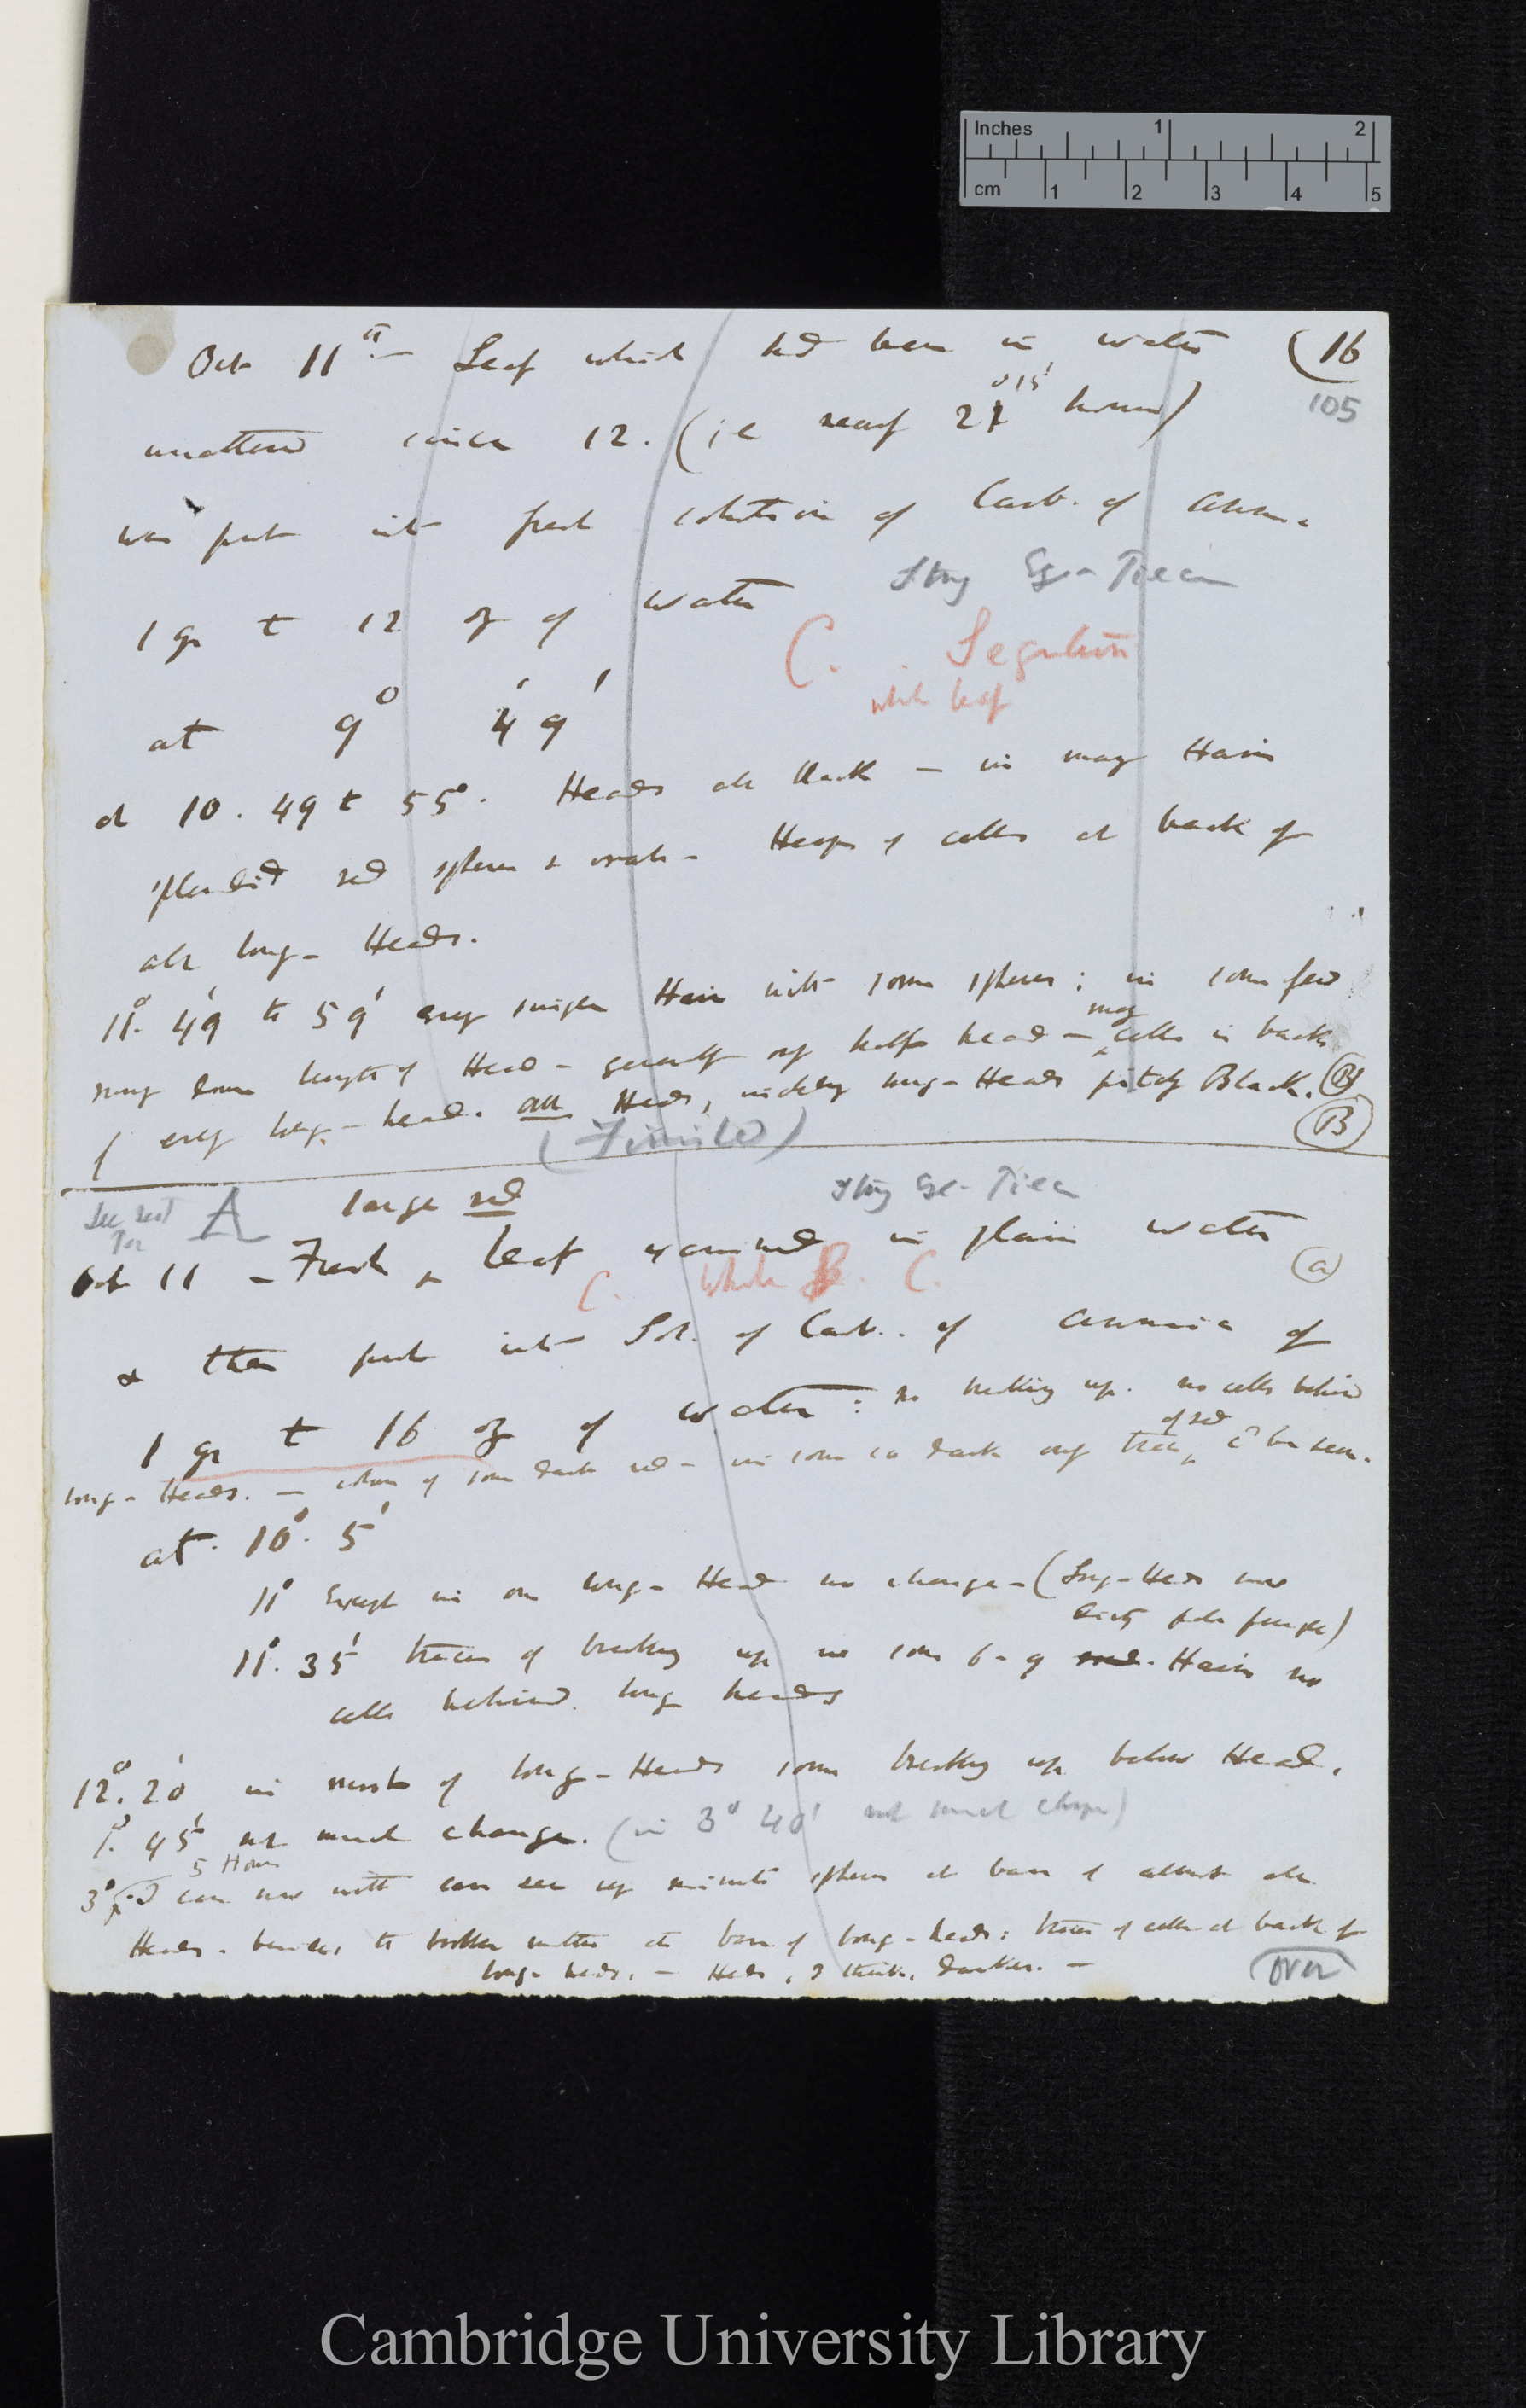 Inches 1 2
cm 1 2 3 4 5
Oct 11th — Leaf which had been in water (16
105
unaltered since 12. (ie nearly 22° 15' hours)
was put into fresh solution of Carb. of Amm.
1 gr to 12 oz of water
C. Segregation
white leaf
at 9° 49'
at 10. 49 to 55°. Heads all black — in many Hairs
splendid red spheres & ovals — Heaps of cells at back of
all long-Heads.
11°. 49' to 59' every single Hair with some spheres; in some few
many down length of Head — generally only half head — many cells in back
of every long-head. All Heads, including long-Heads pitchy Black. (B)
(B)
(Finished)
A large red
Oct 11 — Fresh ^ Leaf examined in plain water
(a)
C. White B. C.
& then put into Sol. of Carb. of Ammonia of
1 gr to 16 oz of water: no breaking up. no cells behind
long-Heads. — colour of some dark red — in some so dark only trace ^ of red cd be seen.
at 10°. 5'
11° Except in one long-Head no change — (Long-Heads now
dirty pale purple)
11°. 35' traces of breaking up in some 6-9 Hairs no
cells behind long heads
12°. 20' in most of long-Heads some breaking up below Head.
1°. 45' not much change. (in 3° 40' not much change)
5 Hours
3° can see minute spheres at base of almost all
Heads. besides the broken matter at base of long-heads: traces of cells at back of
long-heads. — Heads, I think, darker. —
over
Cambridge University Library